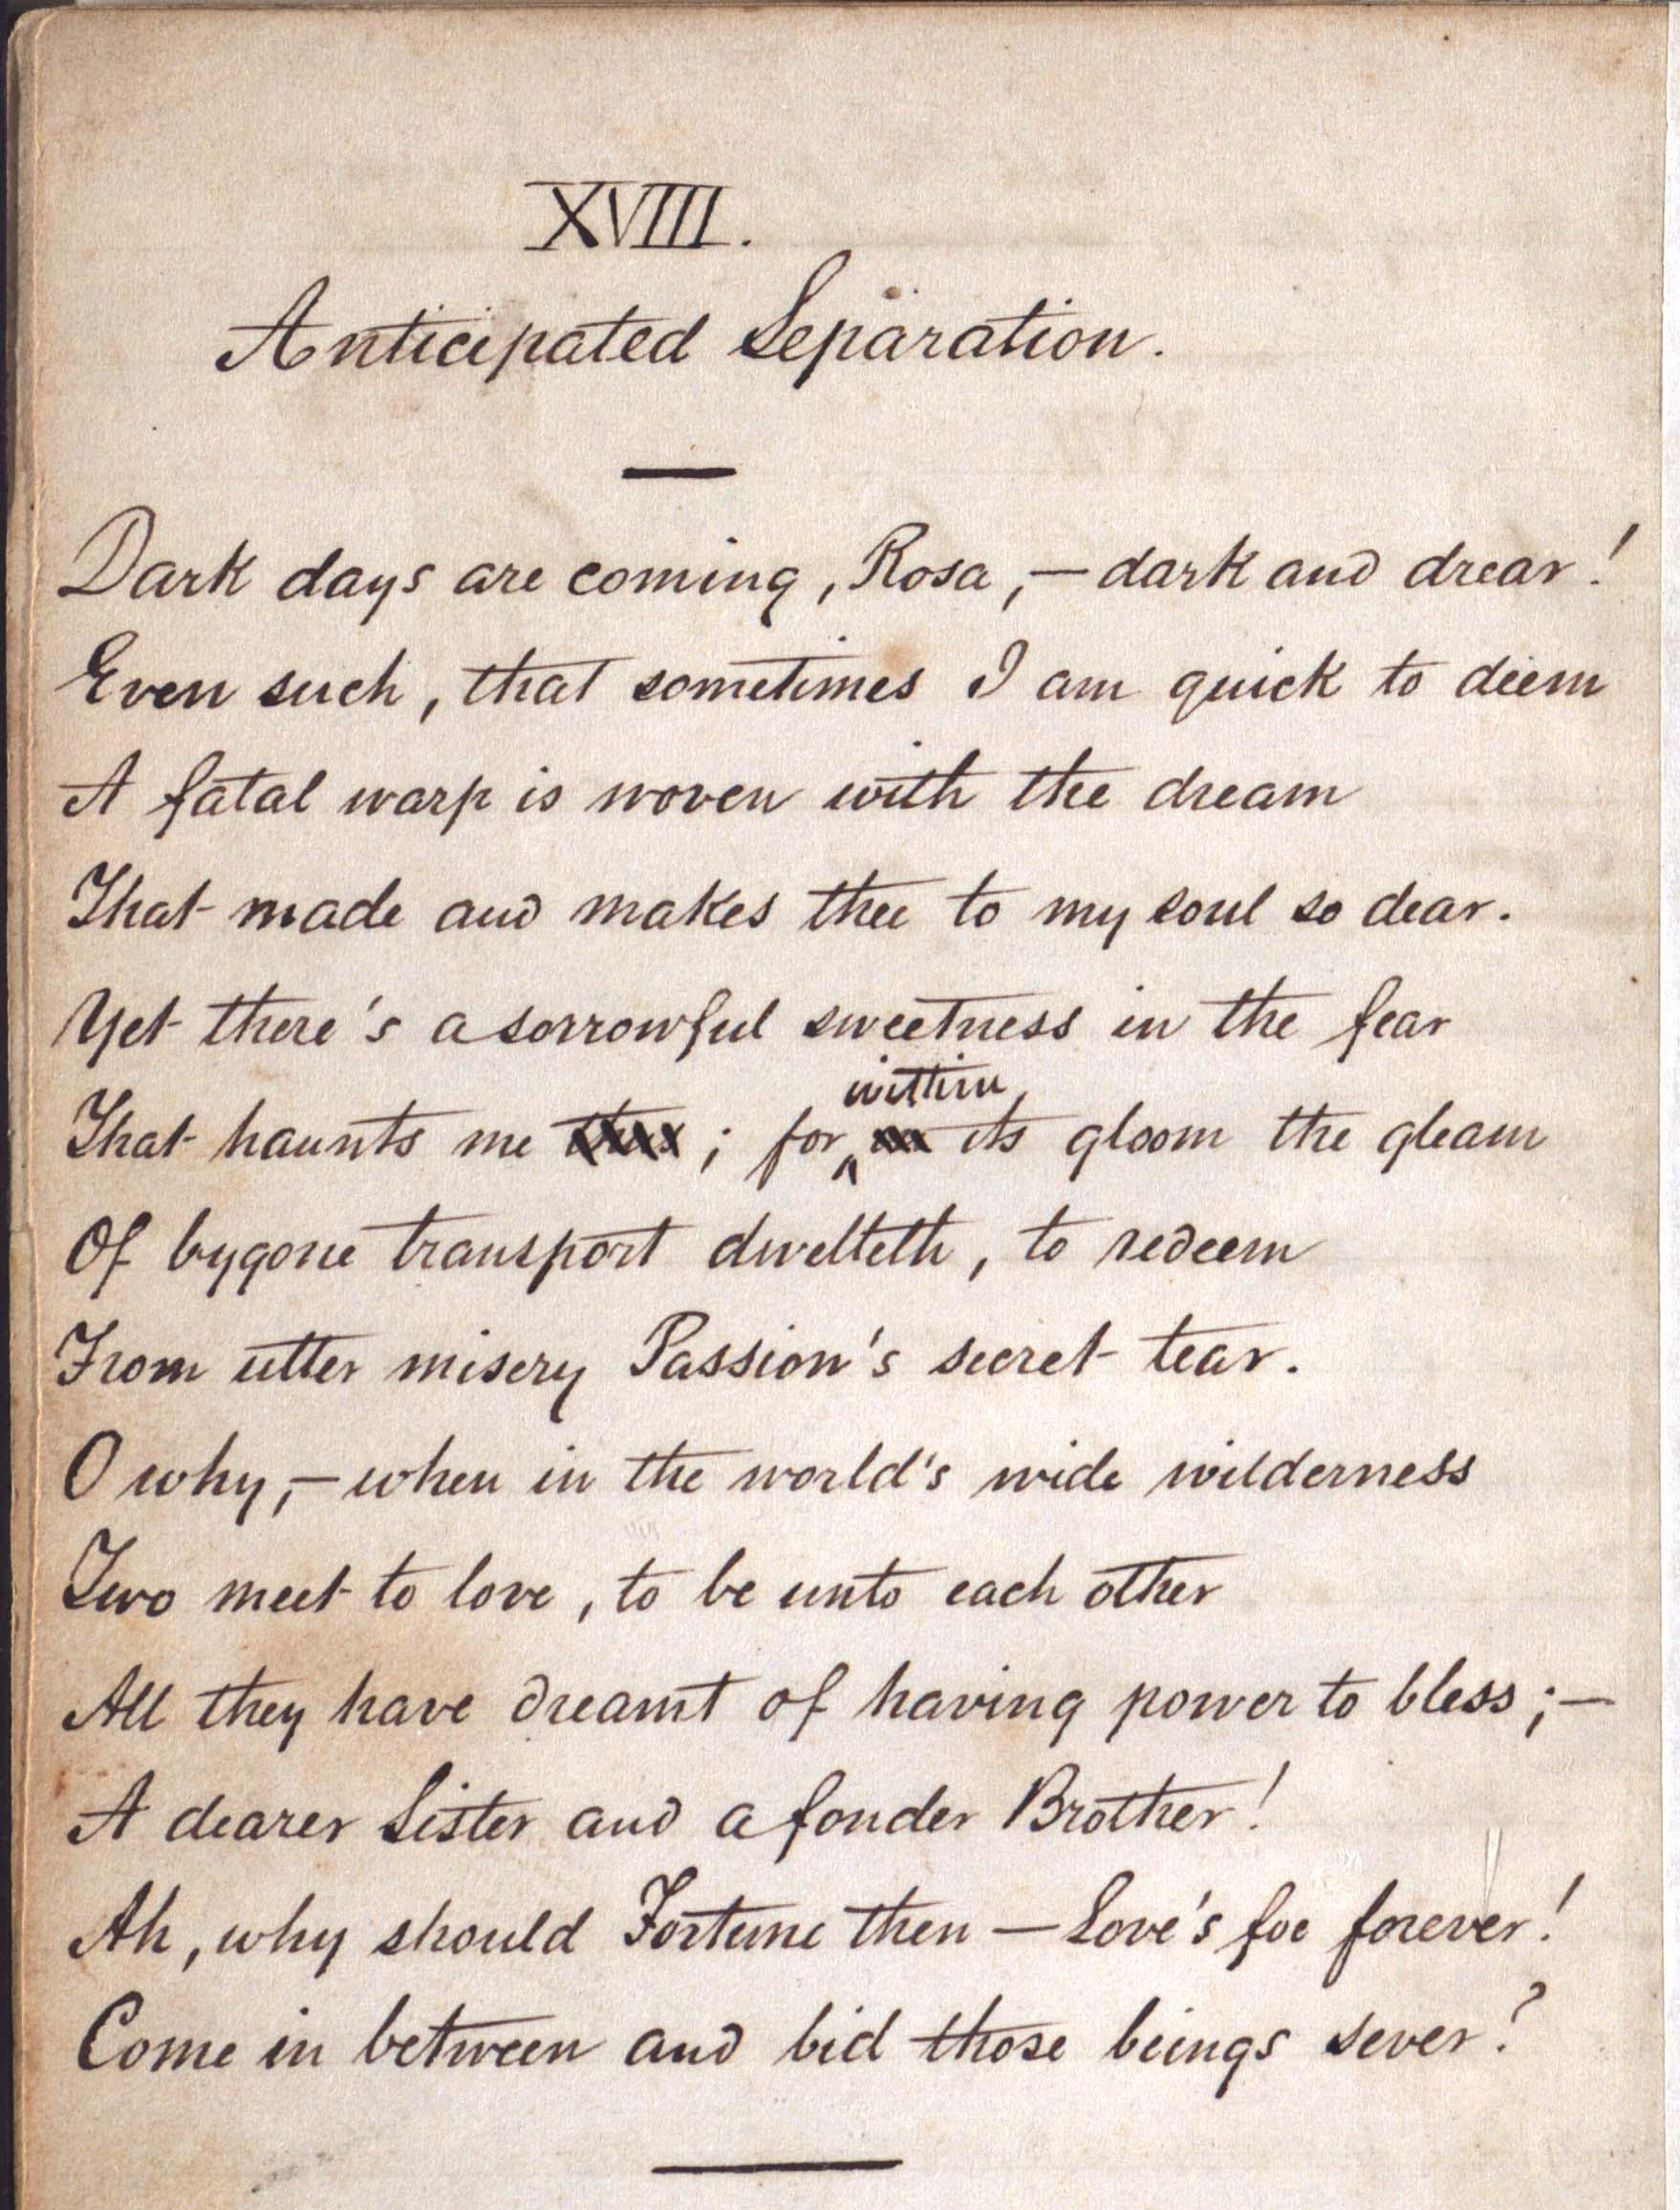 XVIII.
Anticipated Separation.
Dark days are coming, Rosa,—dark and drear!
Even such, that sometimes I am quick to deem
A fatal warp is woven with the dream
That made and makes thee to my soul so dear.
Yet there's a sorrowful sweetness in the fear
within
That haunts me ; for its gloom the gleam
Of bygone transport dwelleth, to redeem
From utter misery Passion's secret tear.
O why,—when in the world's wide wilderness
Two meet to love, to be unto each other
All they have dreamt of having power to bless;—
A dearer Sister and a fonder Brother!
Ah, why should Fortune then—Love's foe forever!
Come in between and bid those beings sever?